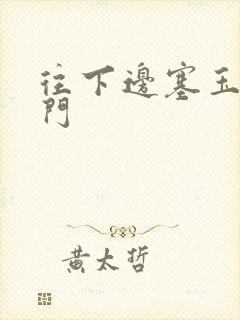 往下邊塞玉
門
黃太哲